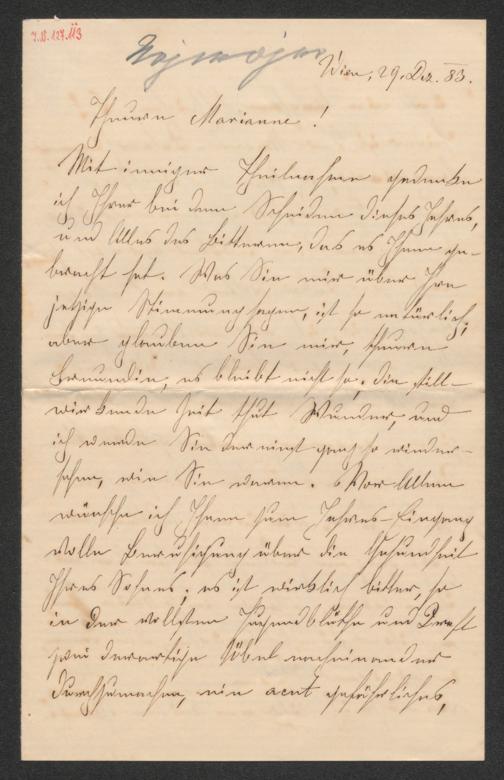 J.B. 127.113
Najmajer
Wien, 29. Dez. 83.
Theure Marianne!
Mit inniger Theilnahme gedenke
ich Ihrer bei dem Scheiden dieses Jahres,
und Alles des Bitteren, das es Ihnen ge-
bracht hat. Was Sie mir über Ihre
jetzige Stimmung sagen, ist so natürlich,
aber glauben Sie mir, theure
Freundin, es bleibt nicht so, die still-
wirkende Zeit thut Wunder, und
ich werde Sie dereinst ganz so wieder-
sehen, wie Sie waren. Vor Allem
wünsche ich Ihnen zum Jahres-Eingang
volle Beruhigung über die Gesundheit
Ihres Sohnes; es ist wirklich bitter, so
in der vollsten Jugendblüthe und Kraft
zwei derartige Übel nacheinander
durchzumachen, ein acut gefährliches,